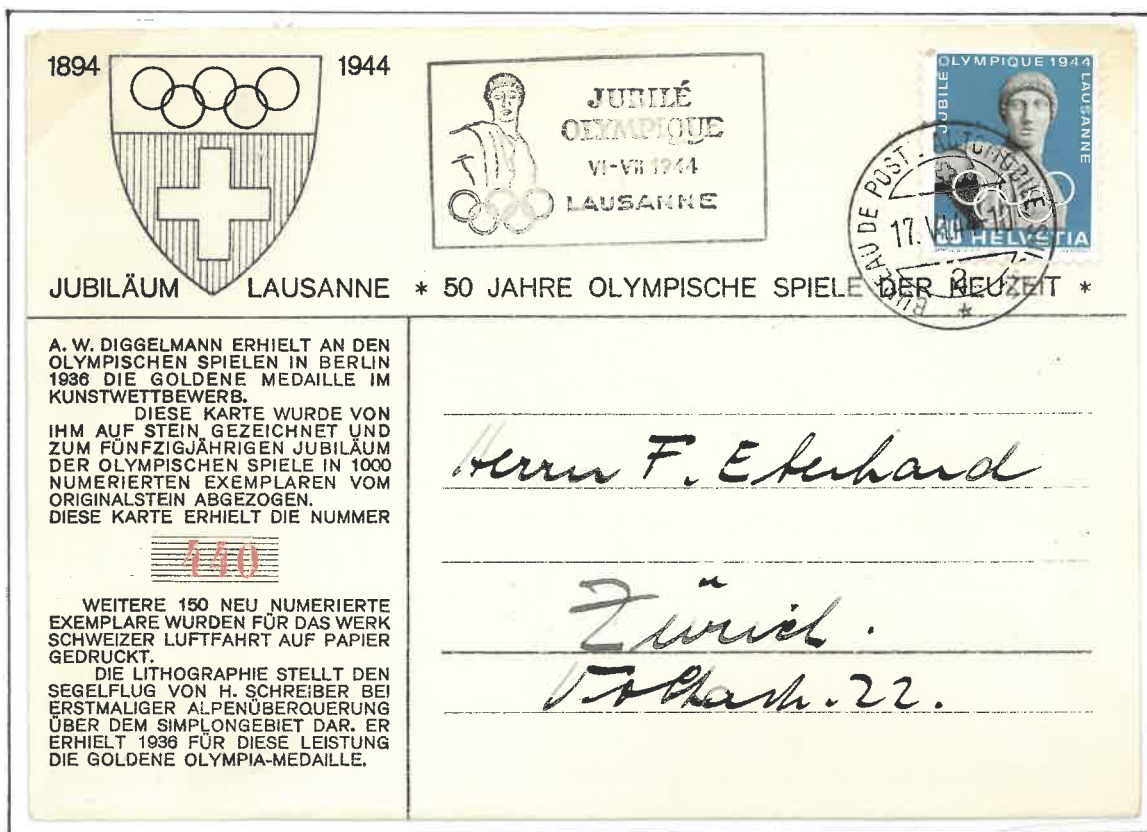 1894 1944
JUBILÉ
OLYMPIQUE
VI-VII 1944
LAUSANNE
JUBILE OLYMPIQUE 1944 LAUSANNE
HELVETIA
BUREAU DE POSTE AUTOMOBILE
2
JUBILÄUM LAUSANNE * 50 JAHRE OLYMPISCHE SPIELE DER NEUZEIT *
A. W. DIGGELMANN ERHIELT AN DEN
OLYMPISCHEN SPIELEN IN BERLIN
1936 DIE GOLDENE MEDAILLE IM
KUNSTWETTBEWERB.
DIESE KARTE WURDE VON
IHM AUF STEIN GEZEICHNET UND
ZUM FÜNFZIGJÄHRIGEN JUBILÄUM
DER OLYMPISCHEN SPIELE IN 1000
NUMERIERTEN EXEMPLAREN VOM
ORIGINALSTEIN ABGEZOGEN.
DIESE KARTE ERHIELT DIE NUMMER
440
WEITERE 150 NEU NUMERIERTE
EXEMPLARE WURDEN FÜR DAS WERK
SCHWEIZER LUFTFAHRT AUF PAPIER
GEDRUCKT.
DIE LITHOGRAPHIE STELLT DEN
SEGELFLUG VON H. SCHREIBER BEI
ERSTMALIGER ALPENÜBERQUERUNG
ÜBER DEM SIMPLONGEBIET DAR. ER
ERHIELT 1936 FÜR DIESE LEISTUNG
DIE GOLDENE OLYMPIA-MEDAILLE.
Herrn F. Eberhard
Zürich.
22.